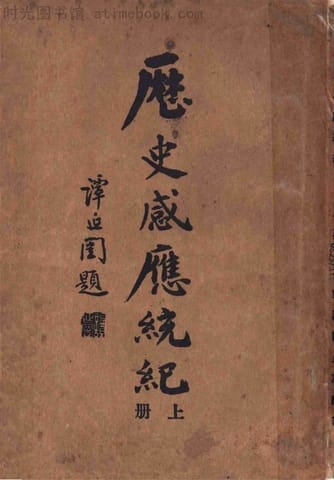 时光图书馆 - atimebook.com
歷史感應統紀
上册
譚延闓題